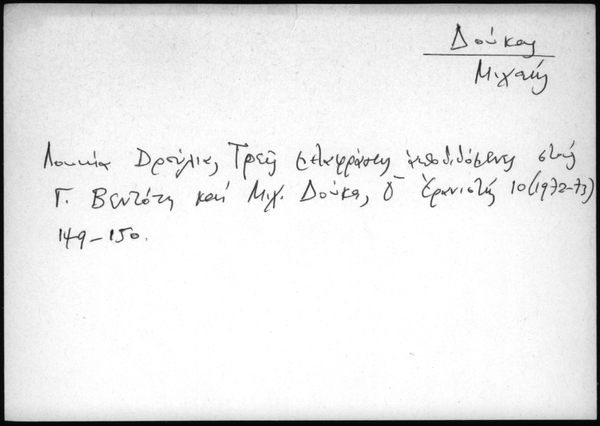 Δούκας
Μιχαήλ
Λουκία Δρούλια, Τρεῖς μεταφράσεις ἀποδιδόμενες στούς
Γ. Βεντότη καί Μιχ. Δούκα, Ὁ Ἐρανιστής 10 (1972-73)
149-150.